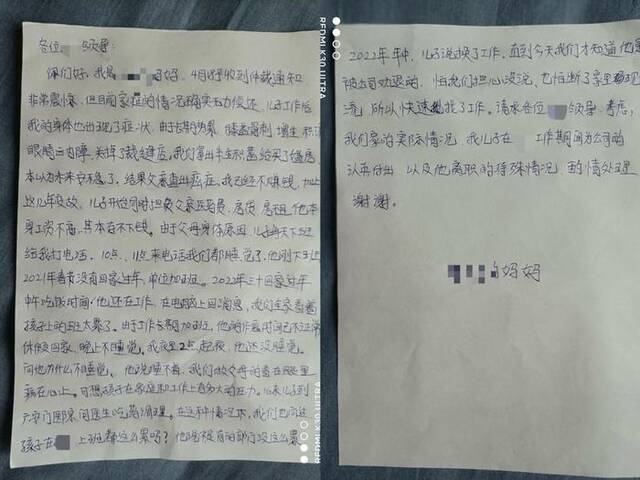 各位 领导:
你们好,我是 妈妈,4月8号收到仲裁通知
非常震惊,但目前家庭的情况确实无力偿还,儿子工作后
我的身体也出现了症状,由于长期劳累,膝盖 增生 积液
眼睛白内障,关掉了裁缝店,我们拿出半生积蓄给买了楼房
本以为未来安稳了,结果父亲查出癌症,我已经不赚钱,加上
这几年疫情,儿子开始同时担负父亲医药费,房贷,房租,他本
身工资不高,其本存不下钱。由于父母身体原因,儿子每天下班
给我打电话,10点、11点来电话我们都睡觉了,他刚下班
2021年春节没有回家过年,单位加班。2022年三十回家过年
中午吃饭时间,他还在工作,在电脑上回消息,我们全家看着
孩子上的班太累了。由于工作长期加班,他的作息时间已不正常
休假回家,晚上不睡觉。我夜里2点起夜,他还没睡觉。
问他为什么不睡觉,他说睡不着,我们做父母的看在眼里
疼在心上。可想孩子在家庭和工作上有多大的压力。后来儿子到
广安门医院问医生吃药调理。在这种情况下,我们也问过
孩子在 上班都这么累吗?他说没有的部门没这么累
2022年年中,儿子说换了工作。直到今天我们才知道他是
被公司劝退的,怕我们担心没说,也怕断了家里现
流,所以快速找了工作。请求各位 领导考虑,
我们家的实际情况,我儿子在 工作期间为公司的
认真付出,以及他离职的特殊情况 酌情处理
谢谢。
妈妈
REDMI K30 ULTRA
REDMI K30 ULTRA